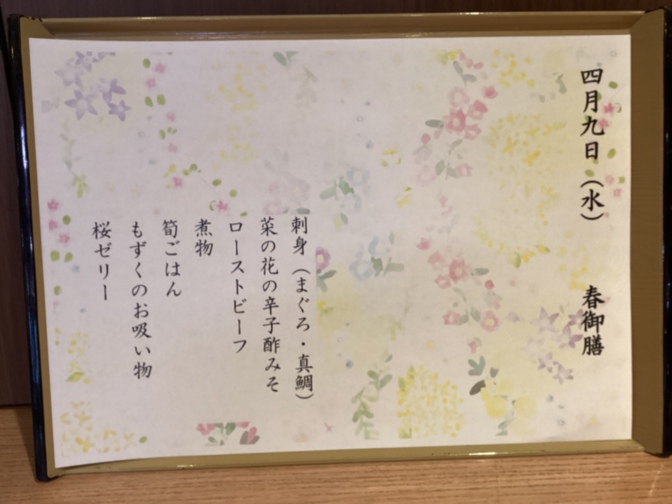 四月九日（水）　春御膳
刺身（まぐろ・真鯛）
菜の花の辛子酢みそ
ローストビーフ
煮物
筍ごはん
もずくのお吸い物
桜ゼリー